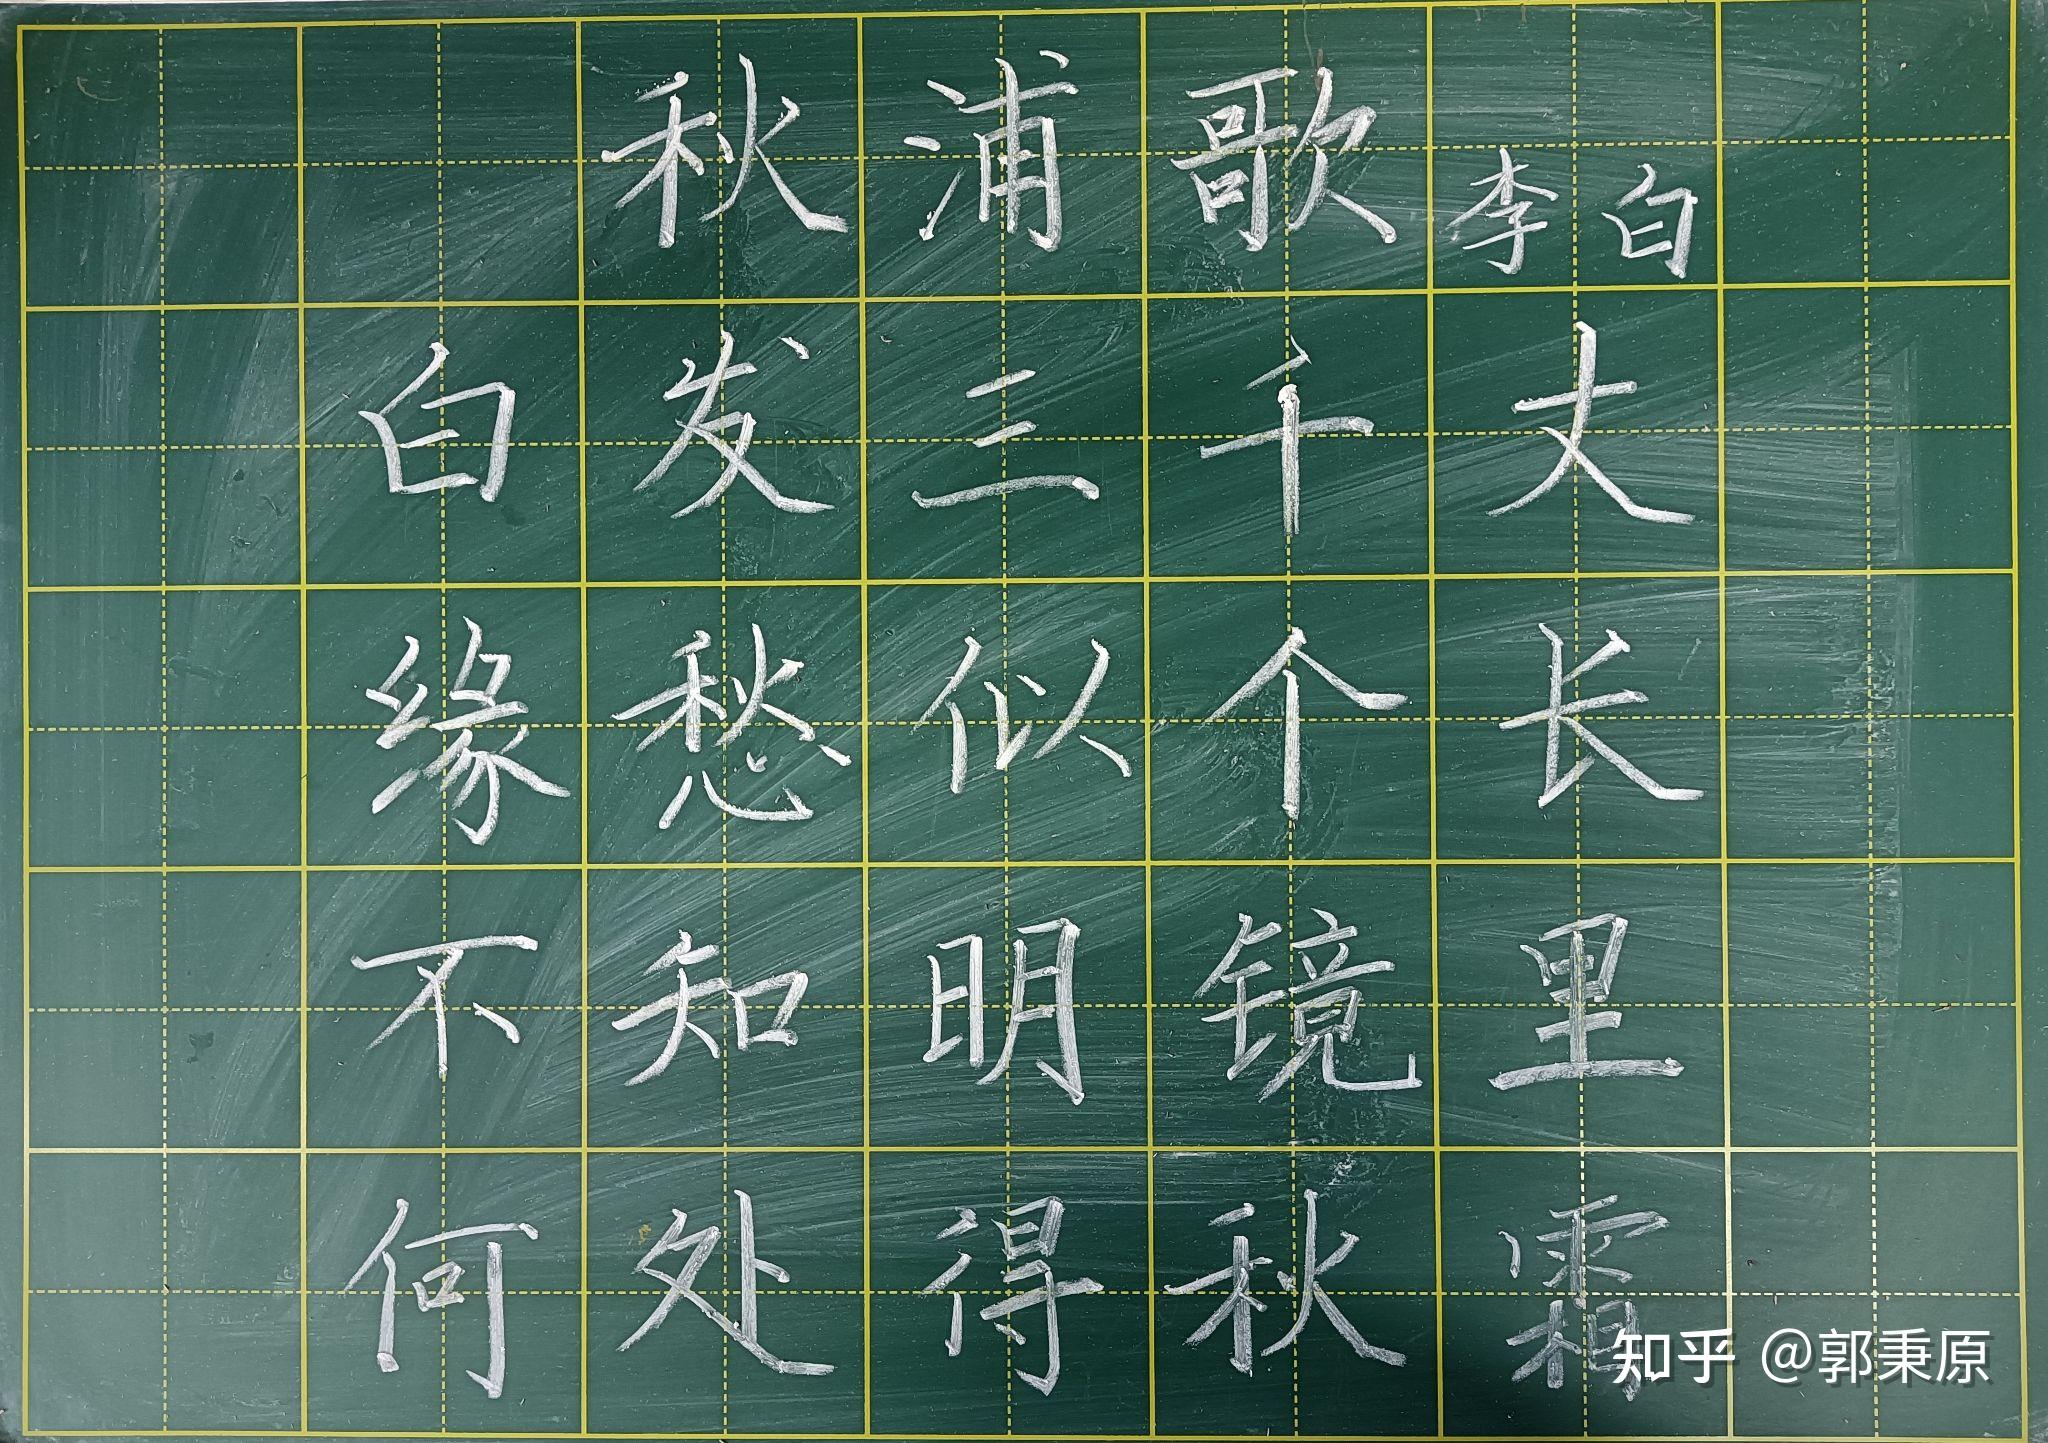 秋浦歌 李白
白发三千丈
缘愁似个长
不知明镜里
何处得秋霜
知乎 @郭秉原